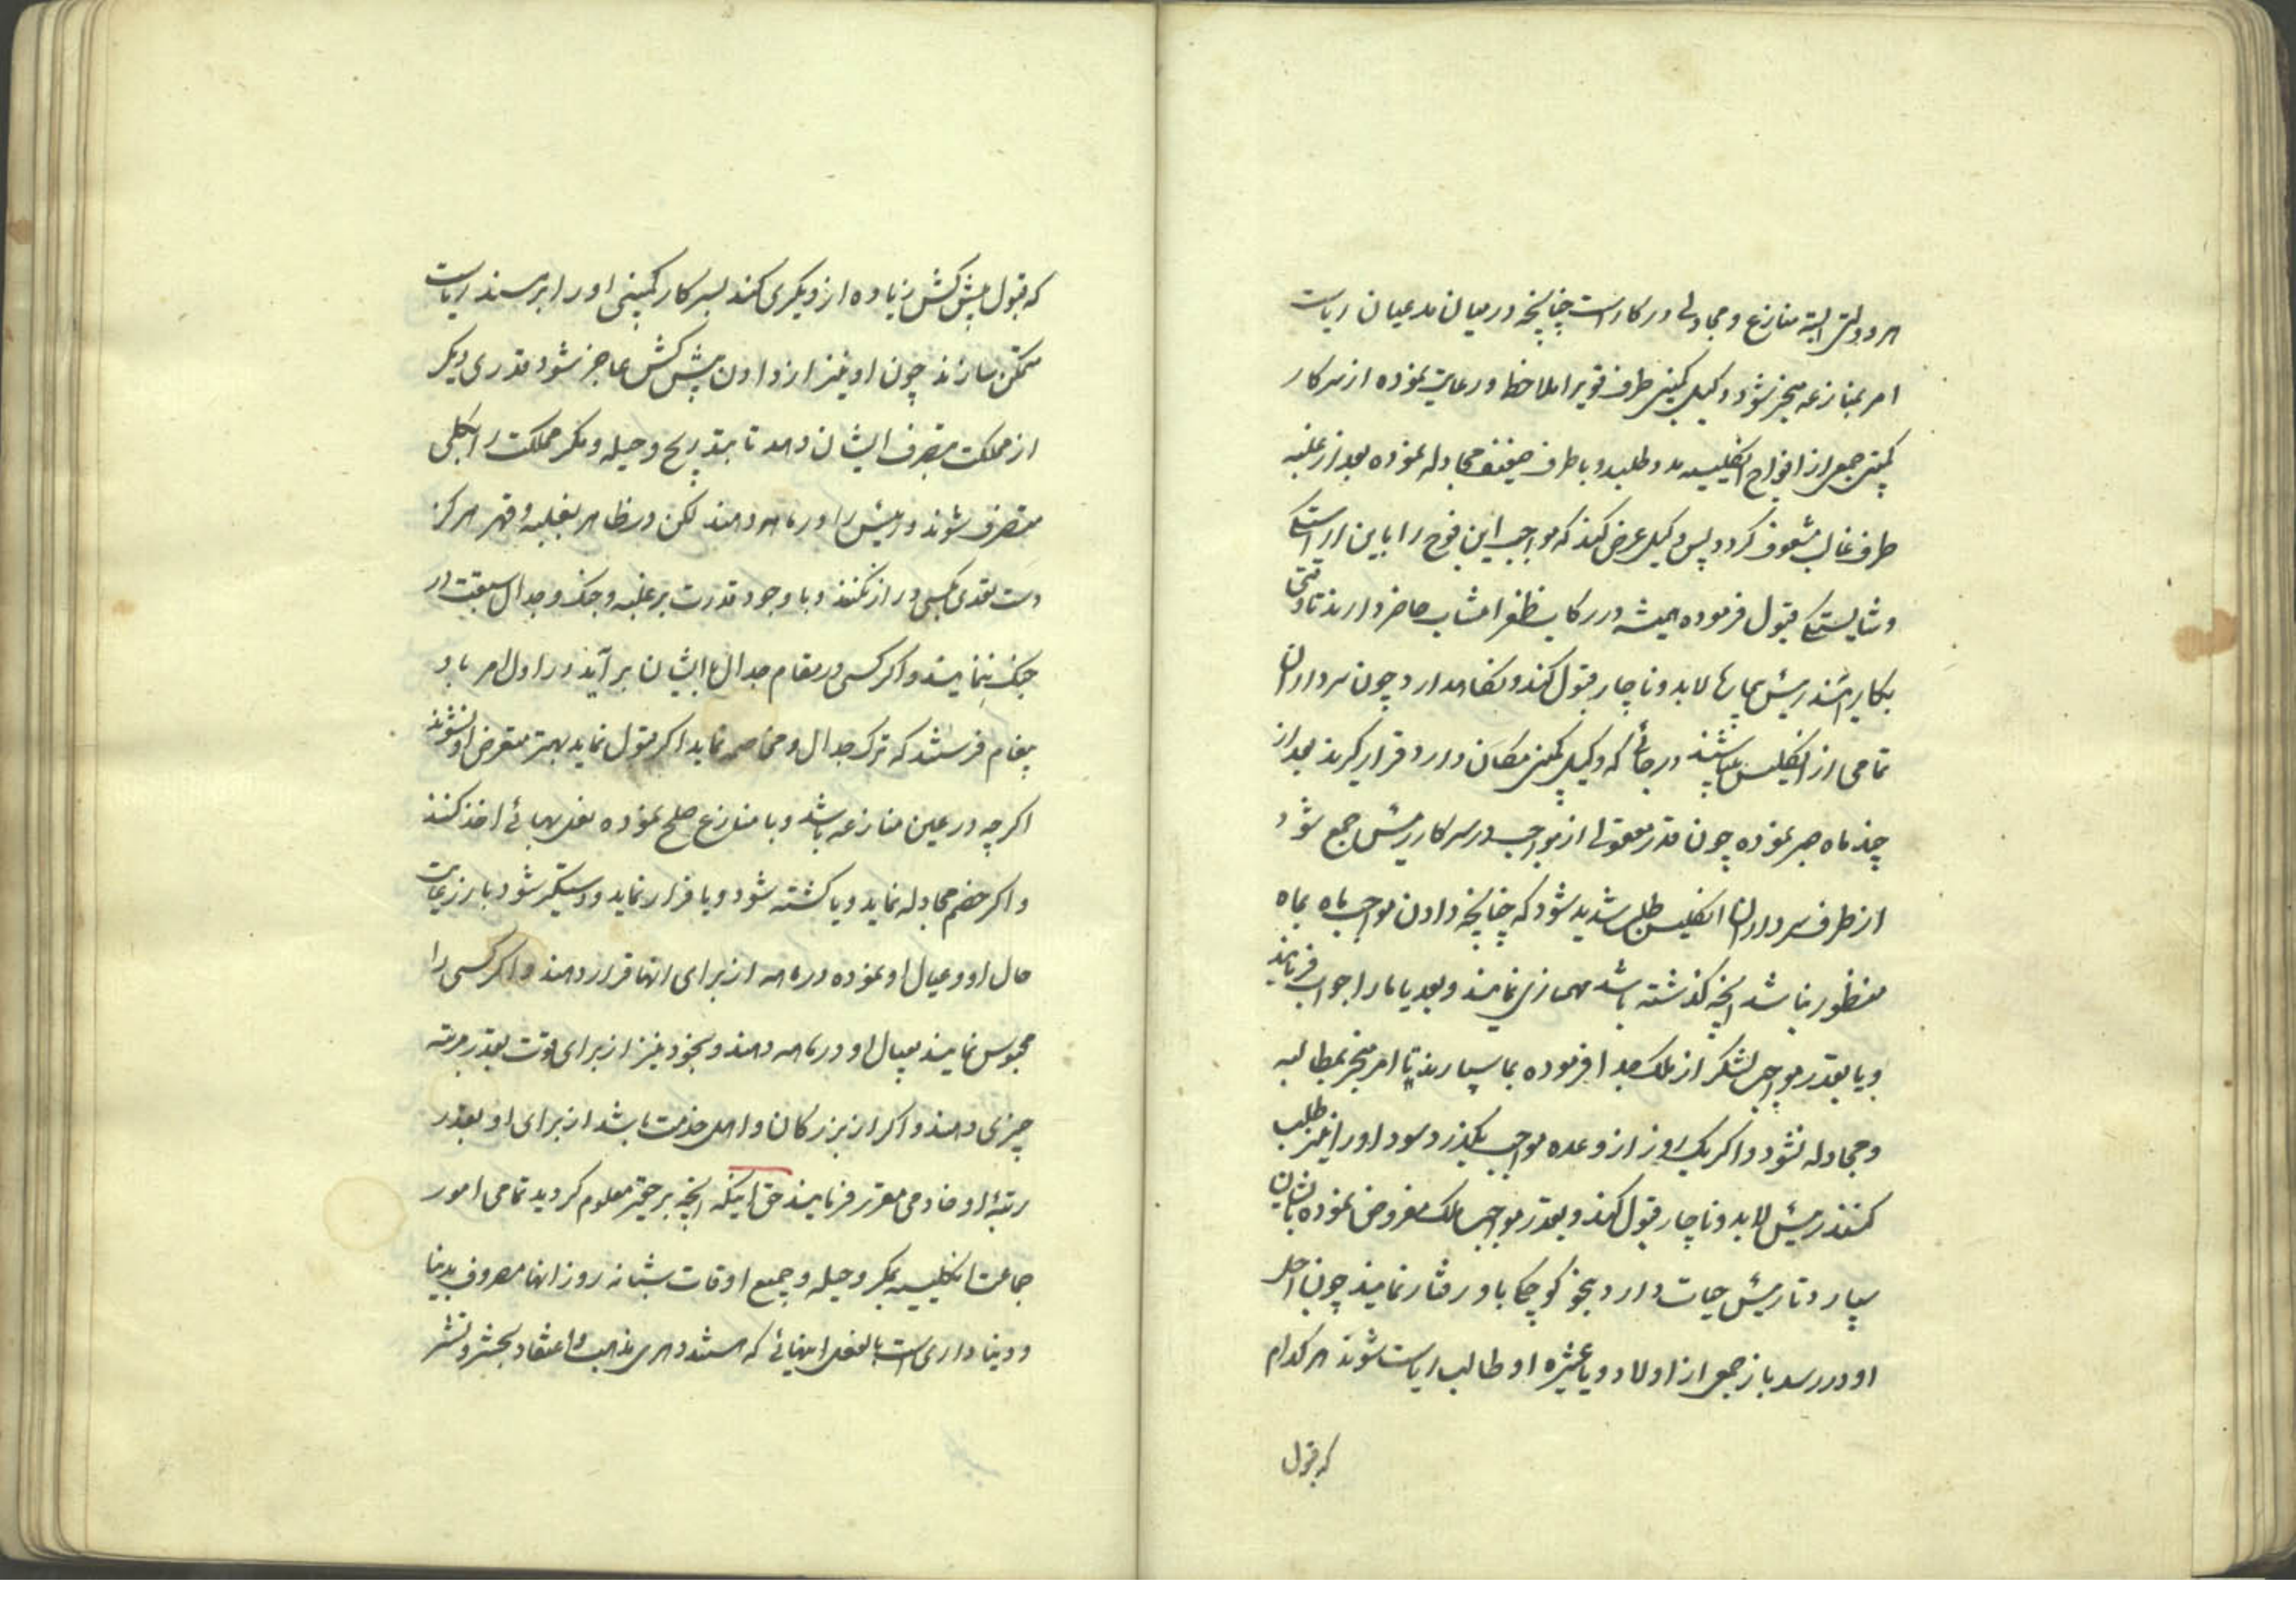 هر دولتی البته منازع و مجادلی در کار است چنانچه در میان مدعیان ریاست
امر بمنازعه منجر شود وکیل کمپنی طرف قویرا ملاحظه و رعایت نموده از سرکار
کمپنی جمعی از افواج انگلیسیه مدد طلبد و با طرف ضعیف مجادله نموده بعد از غلبه
طرف غالب مشعوف گردد پس وکیل عرض کند که مواجب این فوج را باین اراستگی
و شایستگی قبول فرموده همیشه در رکاب ظفر انتساب حاضر دارند تا وقتی
بکار آیند رئیس بیچاره لابد و ناچار قبول کند و نگاهدارد چون سرداران
تمامی از انگلیس میباشند در جائی که وکیل کمپنی مکان دارد قرار گیرند بعد از
چند ماه صبر نموده چون قدر معقولی از مواجب در سرکار رئیس جمع شود
از طرف سرداران انگلیس طلب شدید شود که چنانچه دادن مواجب ماه بماه
منظور نباشد انچه گذشته باشد مهمسازی نمایند و بعد یا ما را جواب فرمایند
و یا بقدر مواجب لشکر از ملک جدا فرموده بما سپارند تا امر منجر بمطالبه
و مجادله نشود و اگر یک روز از وعده مواجب بگذرد سود او را نیز طلب
کنند رئیس لابد و ناچار قبول کند و بقدر مواجب ملک مفروض نموده بایشان
سپارد تا رئیس حیات دارد بنحو کوچکی با او رفتار نمایند چون اجل
او در رسد باز جمعی از اولاد و یا عشیره او طالب ریاست شوند هر کدام
که قبول
که قبول پیش کش زیاده از دیگری کند بسرکار کمپنی او را بر مسند ریاست
متمکن سازند چون او نیز از دادن پیش کش عاجز شود قدری دیگر
از مملکت بتصرف ایشان دهد تا بتدریج و حیله و مکر مملکت را بکلی
متصرف شوند و رئیس را در ماهه دهند لکن در ظاهر بغلبه و قهر هرگز
دست تعدی بکسی دراز نکنند و با وجود قدرت بر غلبه و جنگ و جدال سبقت در
جنگ ننمایند و اگر کسی در مقام جدال با ایشان بر آید در اول امر باو
پیغام فرستند که ترک جدال و مخاصمه نماید اگر قبول نماید بهتر متعرض او نشوند
اگر چه در عین منازعه باشد و با منازع صلح نموده نعل بهائی اخذ کنند
و اگر خصم مجادله نماید و یا کشته شود و یا فرار نماید و دستگیر شود باز رعایت
حال او و عیال او نموده در ماهه از برای انها قرار دهند و اگر کسی را
محبوس نمایند بعیال او در ماهه دهند و بخود نیز از برای قوت بقدر مرتبه
چیزی دهند و اگر از بزرگان و اهل خدمت باشد از برای او بقدر
رتبهٔ او خادمی مقرر فرمایند حق اینکه انچه بر حقیر معلوم گردید تمامی امور
جماعت انگلیسیه بمکر و حیله و جمیع اوقات شبانه روز انها مصروف بدنیا
و دنیا داری است بالفعل اینهائی که هستند دهری مذهب و اعتقاد بحشر و نشر